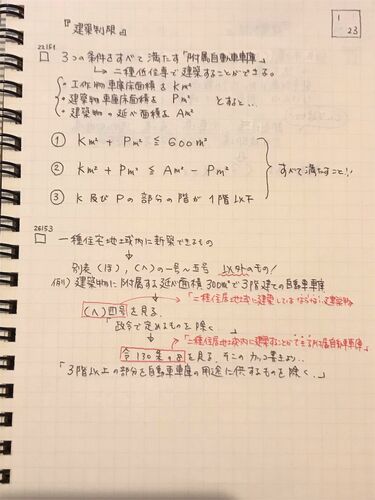 1
23
『建築制限』
22151
□ 3つの条件をすべて満たす「附属自動車車庫」
↳ 二種低住専で建築することができる。
・工作物車庫床面積を Km²
・建築物車庫床面積を Pm²
・建築物の延べ面積を Am²
とすると…
① Km² + Pm² ≦ 600m²
② Km² + Pm² ≦ Am² - Pm²
③ K及びPの部分の階が1階以下
すべて満たすこと!!
26153
□ 一種住宅地域内に新築できるもの
↓
別表(ほ)、(へ)の一号〜五号 以外のもの!
例1) 建築物に附属する延べ面積300m²で3階建ての自動車車庫
↓
「二種住居地域に建築してはならない建築物
(へ)四号を見る。
「政令で定めるものを除く」
↓
「二種住居地域内に建築することができる附属自動車車庫」
令130条の8を見る。そのカッコ書きより…
「3階以上の部分を自動車車庫の用途に供するものを除く。」